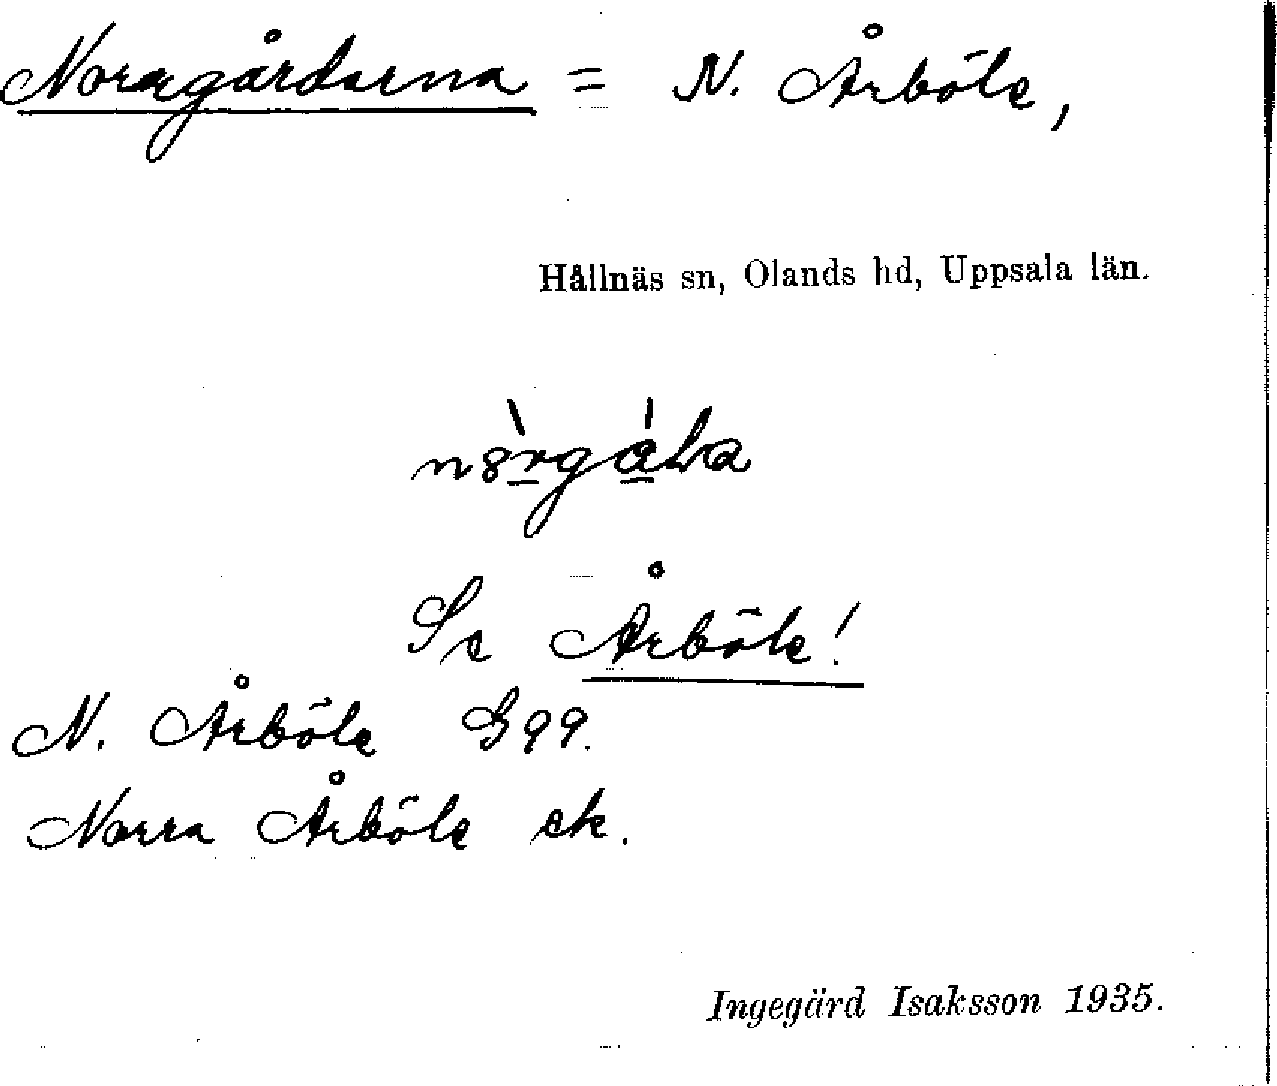 Noragårdarna = N. Årböle,
Hållnäs sn, Olands hd, Uppsala län.
Se Årböle!
N. Årböle G99.
Norra Årböle ek.
Ingegärd Isaksson 1935.